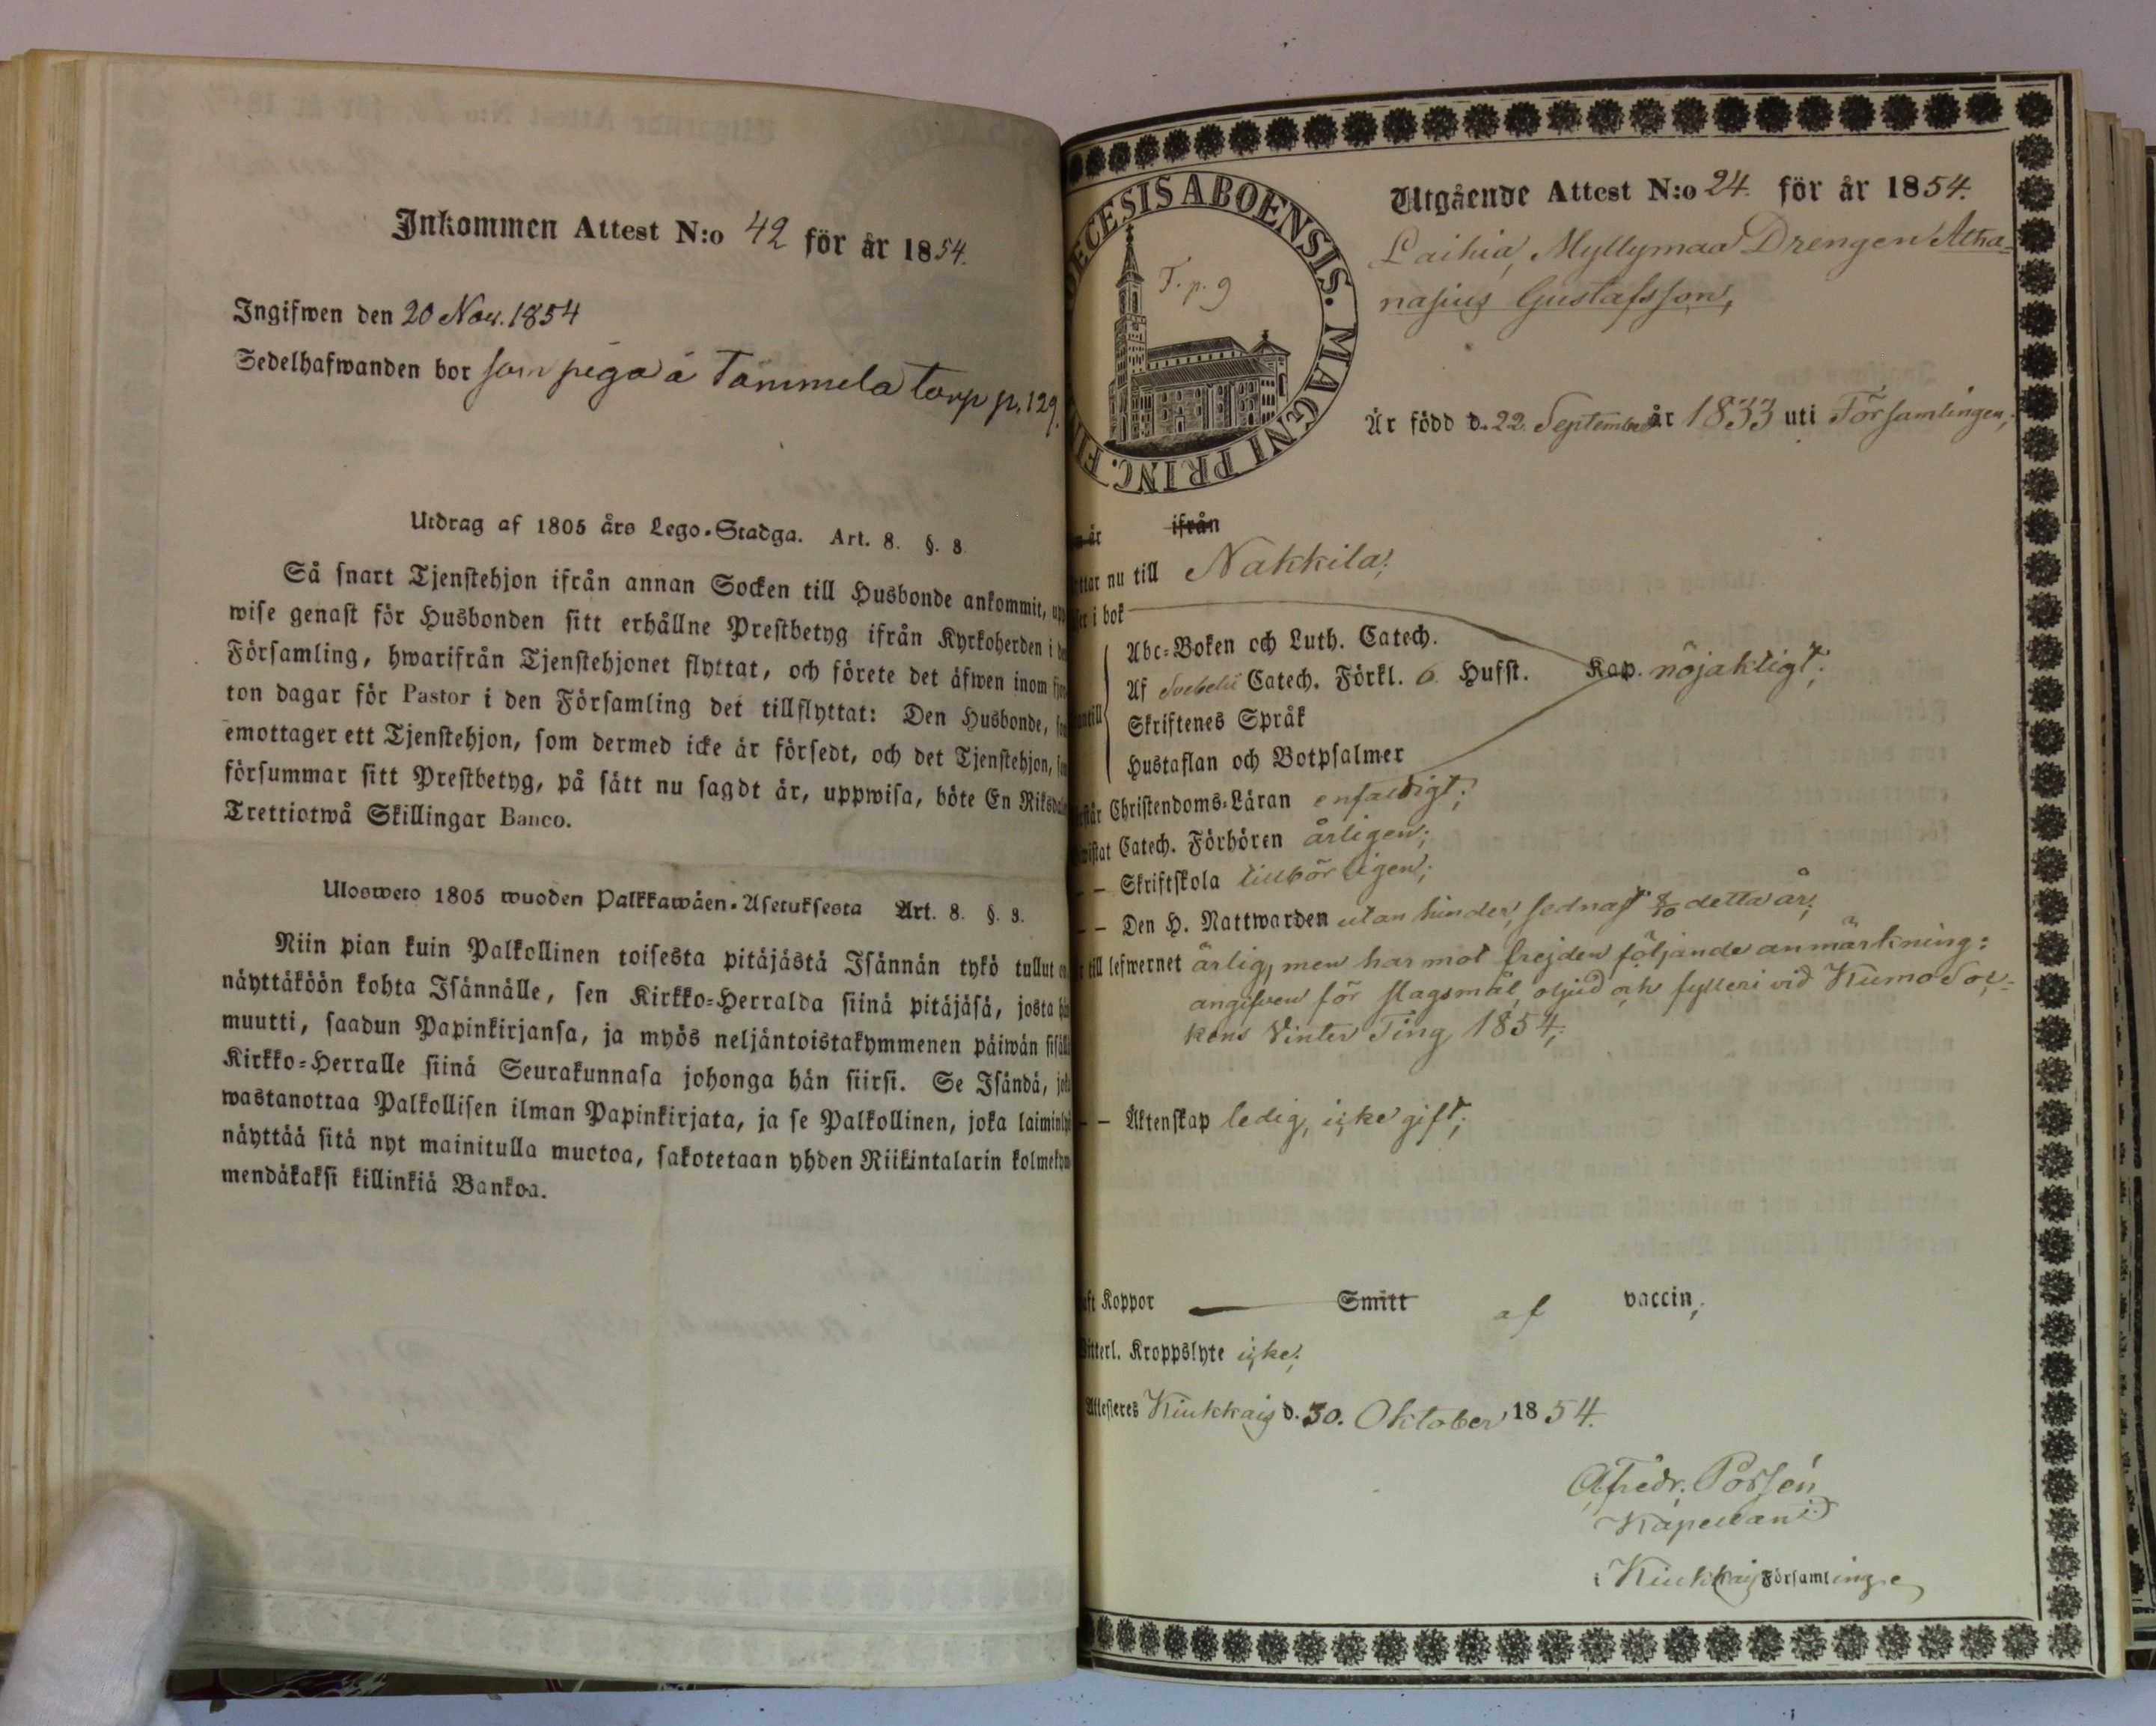 Inkommen Attest N:o 42 för år 1854.
Ingifwen den 20 Nov. 1854
Sedelhafwanden bor som piga å Tammela torp p. 129.
Utdrag af 1805 års Lego-Stadga. Art. 8. §. 8.
Så snart Tjenstehjon ifrån annan Socken till Husbonde ankommit, upp
wise genast för Husbonden sitt erhållne Prestbetyg ifrån Kyrkoherden i
Församling, hwarifrån Tjenstehjonet flyttat, och förete det äfwen inom
ton dagar för Pastor i den Församling det tillflyttat: Den Husbonde,
emottager ett Tjenstehjon, som dermed icke är försedt, och det Tjenstehjon,
försummar sitt Prestbetyg, på sätt nu sagdt är, uppwisa, böte En Riksdal
Trettiotwå Skillingar Banco.
Ulosweto 1805 wuoden Palkkawäen-Asetuksesta Art. 8. §. 8.
Niin pian kuin Palkollinen toisesta pitäjästä Isännän tykö tullut
näyttäköön kohta Isännälle, sen Kirkko-Herralda siinä pitäjäsä, josta
muutti, saadun Papinkirjansa, ja myös neljäntoistakymmenen päiwän
Kirkko-Herralle siinä Seurakunnasa johonga hän siirsi. Se Isändä,
wastanottaa Palkollisen ilman Papinkirjata, ja se Palkollinen, joka
näyttää sitä nyt mainitulla muotoa, sakotetaan yhden Riikintalarin
mendäkaksi killinkiä Bankoa.
ECESIS ABOENSIS. MAGNI PRINC. F
T. p. 9
Utgående Attest N:o 24. för år 1854.
Laihia, Myllymaa Drengen Atha-
nasius Gustafsson,
Är född d. 22. September år 1833 uti Församlingen;
är ifrån
ttar nu till Nakkila;
i bok
Abc-Boken och Luth. Catech.
Af Svebelii Catech. Förkl. 6 Hufst. Kap. nöjaktigt;
Skriftenes Språk
Hustaflan och Botpsalmer
Christendoms-Läran enfaldigt;
Catech. Förhören årligen;
– – Skriftskola tillbörligen;
– – Den H. Nattwarden utan hinder, sednast 8/10 detta år;
till lefwernet ärlig, men har mot frejden följande anmärkning:
angifven för slagsmål, oljud och fylleri vid Kumo Soc-
kens Vinter Ting 1854;
– – Äktenskap ledig, icke gift;
ft Koppor — Smitt af vaccin;
itterl. Kroppslyte icke;
Attesteres Kiukkais d. 30. Oktober 1854.
A. Fredr. Porsén
Kapellan
i Kiukkais Församling